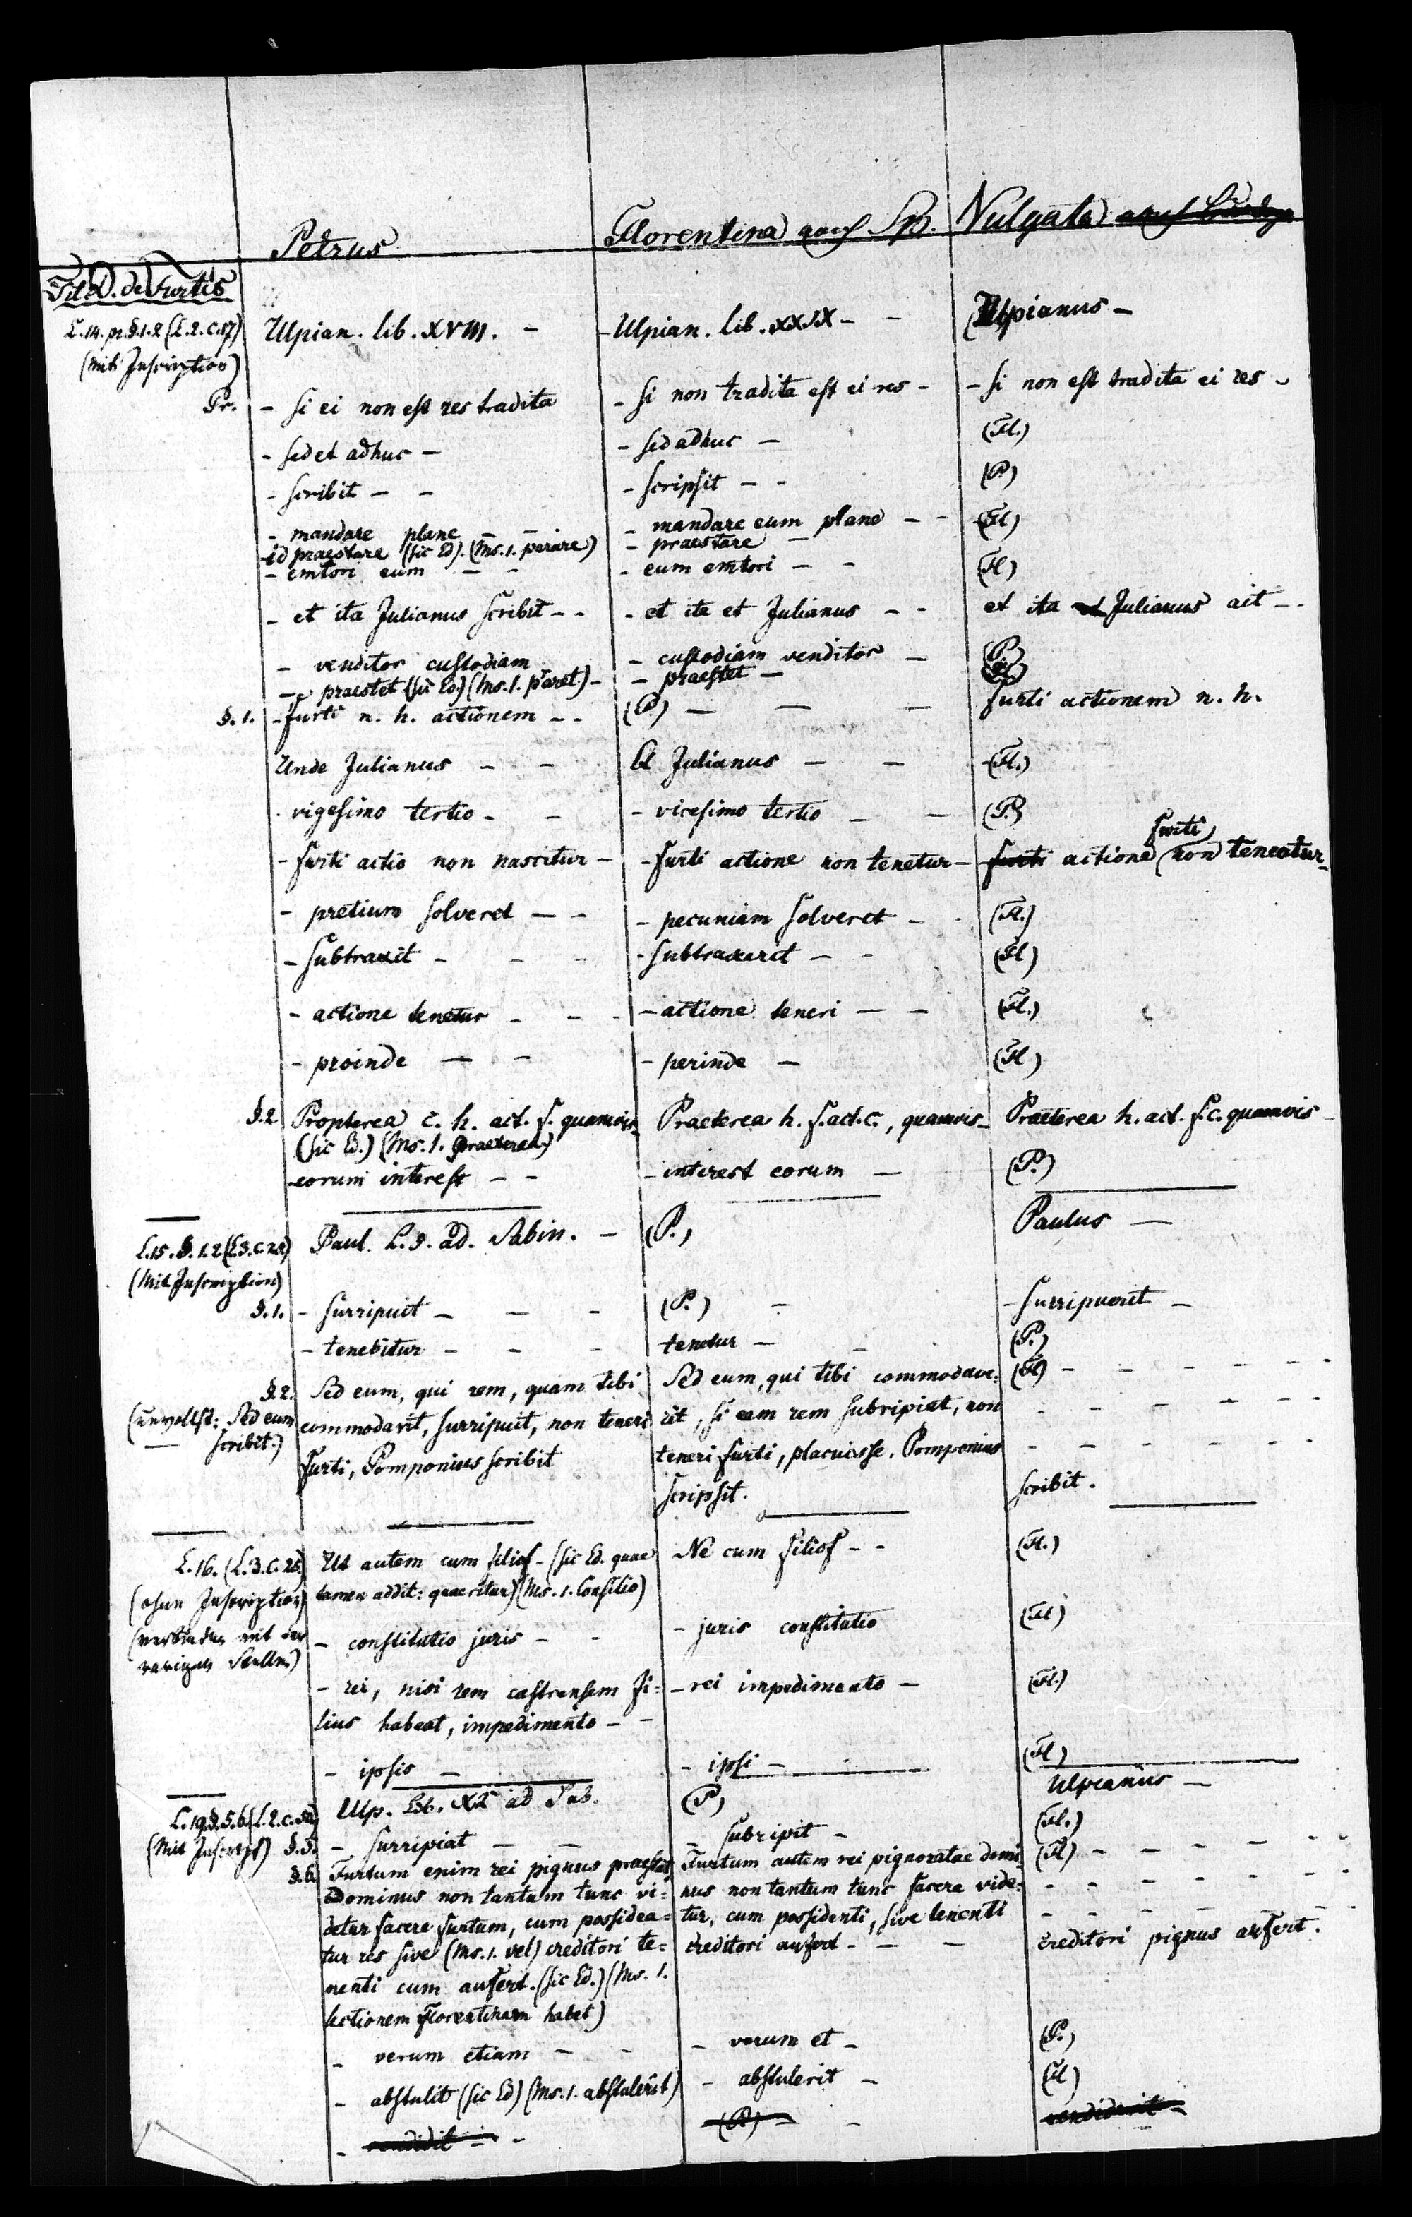 Petrus Florentina nach Sp. Vulgata
Tit. D. de Furtis
L.14. pr. §.1.2 (L.2.c.17) Ulpian. lib. XVIII. - - Ulpian. lib. XXIX - - Ulpianus -
(mit Inscription)
Pr. - si ei non est res tradita - si non tradita est ei res - - si non est tradita ei res -
- sed et adhuc - - sed adhuc - (Fl.)
- scribit - - - scripsit - - (P)
- mandare plane - - - mandare eum plane - - (Fl)
- id praestare (sic Ed). (Ms. 1. parare) - praestare -
- emtori eum - - - eum emtori - - (Fl)
- et ita Julianus scribit - - - et ita et Julianus - - et ita Julianus ait - -
- venditor custodiam - custodiam venditor - (P)
- praestet (sic Ed.) (Ms. 1. paret) - - praestet -
§.1. - furti n. h. actionem - - (P) - - - furti actionem n. h.
Unde Julianus - - Et Julianus - - (Fl.)
- vigesimo tertio - - - vicesimo tertio - - (P.)
furti
- furti actio non nascitur - - furti actione non tenetur - furti actione non teneatur -
- pretium solveret - - - pecuniam solveret - - (Fl.)
- subtraxit - - - - subtraxerit - - (Fl)
- actione tenetur - - - - actione teneri - - (Fl.)
- proinde - - - perinde - (Fl)
§.2 Propterea c. h. act. f. quamvis - Praeterea h. f. act. c., quamvis - Praeterea h. act. f. c. quamvis -
(sic Ed.) (Ms. 1. Praeterea)
- eorum interest - - - interest eorum - (P.)
L.15. §.1.2 (L3.c.24) Paul. L.9. ad. Sabin. - (P.) Paulus -
(Mit Inscription)
§.1. - surripuit - - - (P.) - - surripuerit -
- tenebitur - - - tenetur - - (P.)
§.2. Sed eum, qui rem, quam tibi Sed eum, qui tibi commodave= (Fl) - - - - - -
Sed eum commodavit, surripuit, non teneri rit, si eam rem subripiat, non - - - - - -
- scribit.) furti, Pomponius scribit teneri furti, placuisse. Pomponius - - - - - -
scripsit. scribit.
L.16. (L.3.c.25) Ut autem cum filios - (sic Ed. quae Ne cum filios - - (Fl.)
(ohne Inscription) tamen addit: quaeritur) (Ms. 1. Consilio)
(verbunden mit der - constitutio juris - - - juris constitutio (Fl)
vorigen Stelle)
- rei, nisi rem castrensem fi= - rei impedimento - (Fl.)
lius habeat, impedimento - -
- ipsis - - ipsi - - (Fl)
L.19 §.5.6 Ulp. Lib. XL ad Sab. (P) Ulpianus -
(Mit Inscript) §.5. - surripiat - - - subripit - (Fl.)
§.6 Furtum enim rei pignus praestat Furtum autem rei pignoratae domi= (Fl) - - - - -
Dominus non tantum tunc vi= nus non tantum tunc facere vide= - - - - - -
detur facere furtum, cum possidea= tur, cum possidenti, sive tenenti - - - - - -
tur res sive (Ms. 1. vel) creditori te= creditori aufert - - - creditori pignus aufert.
nenti cum aufert. (sic Ed.) (Ms. 1.
lectionem Florentinam habet)
- verum etiam - - - verum et - (P.)
- abstulit (sic Ed) (Ms. 1. abstulerit) - abstulerit - (Fl)
- vendidit - - (P) - - vendiderit -